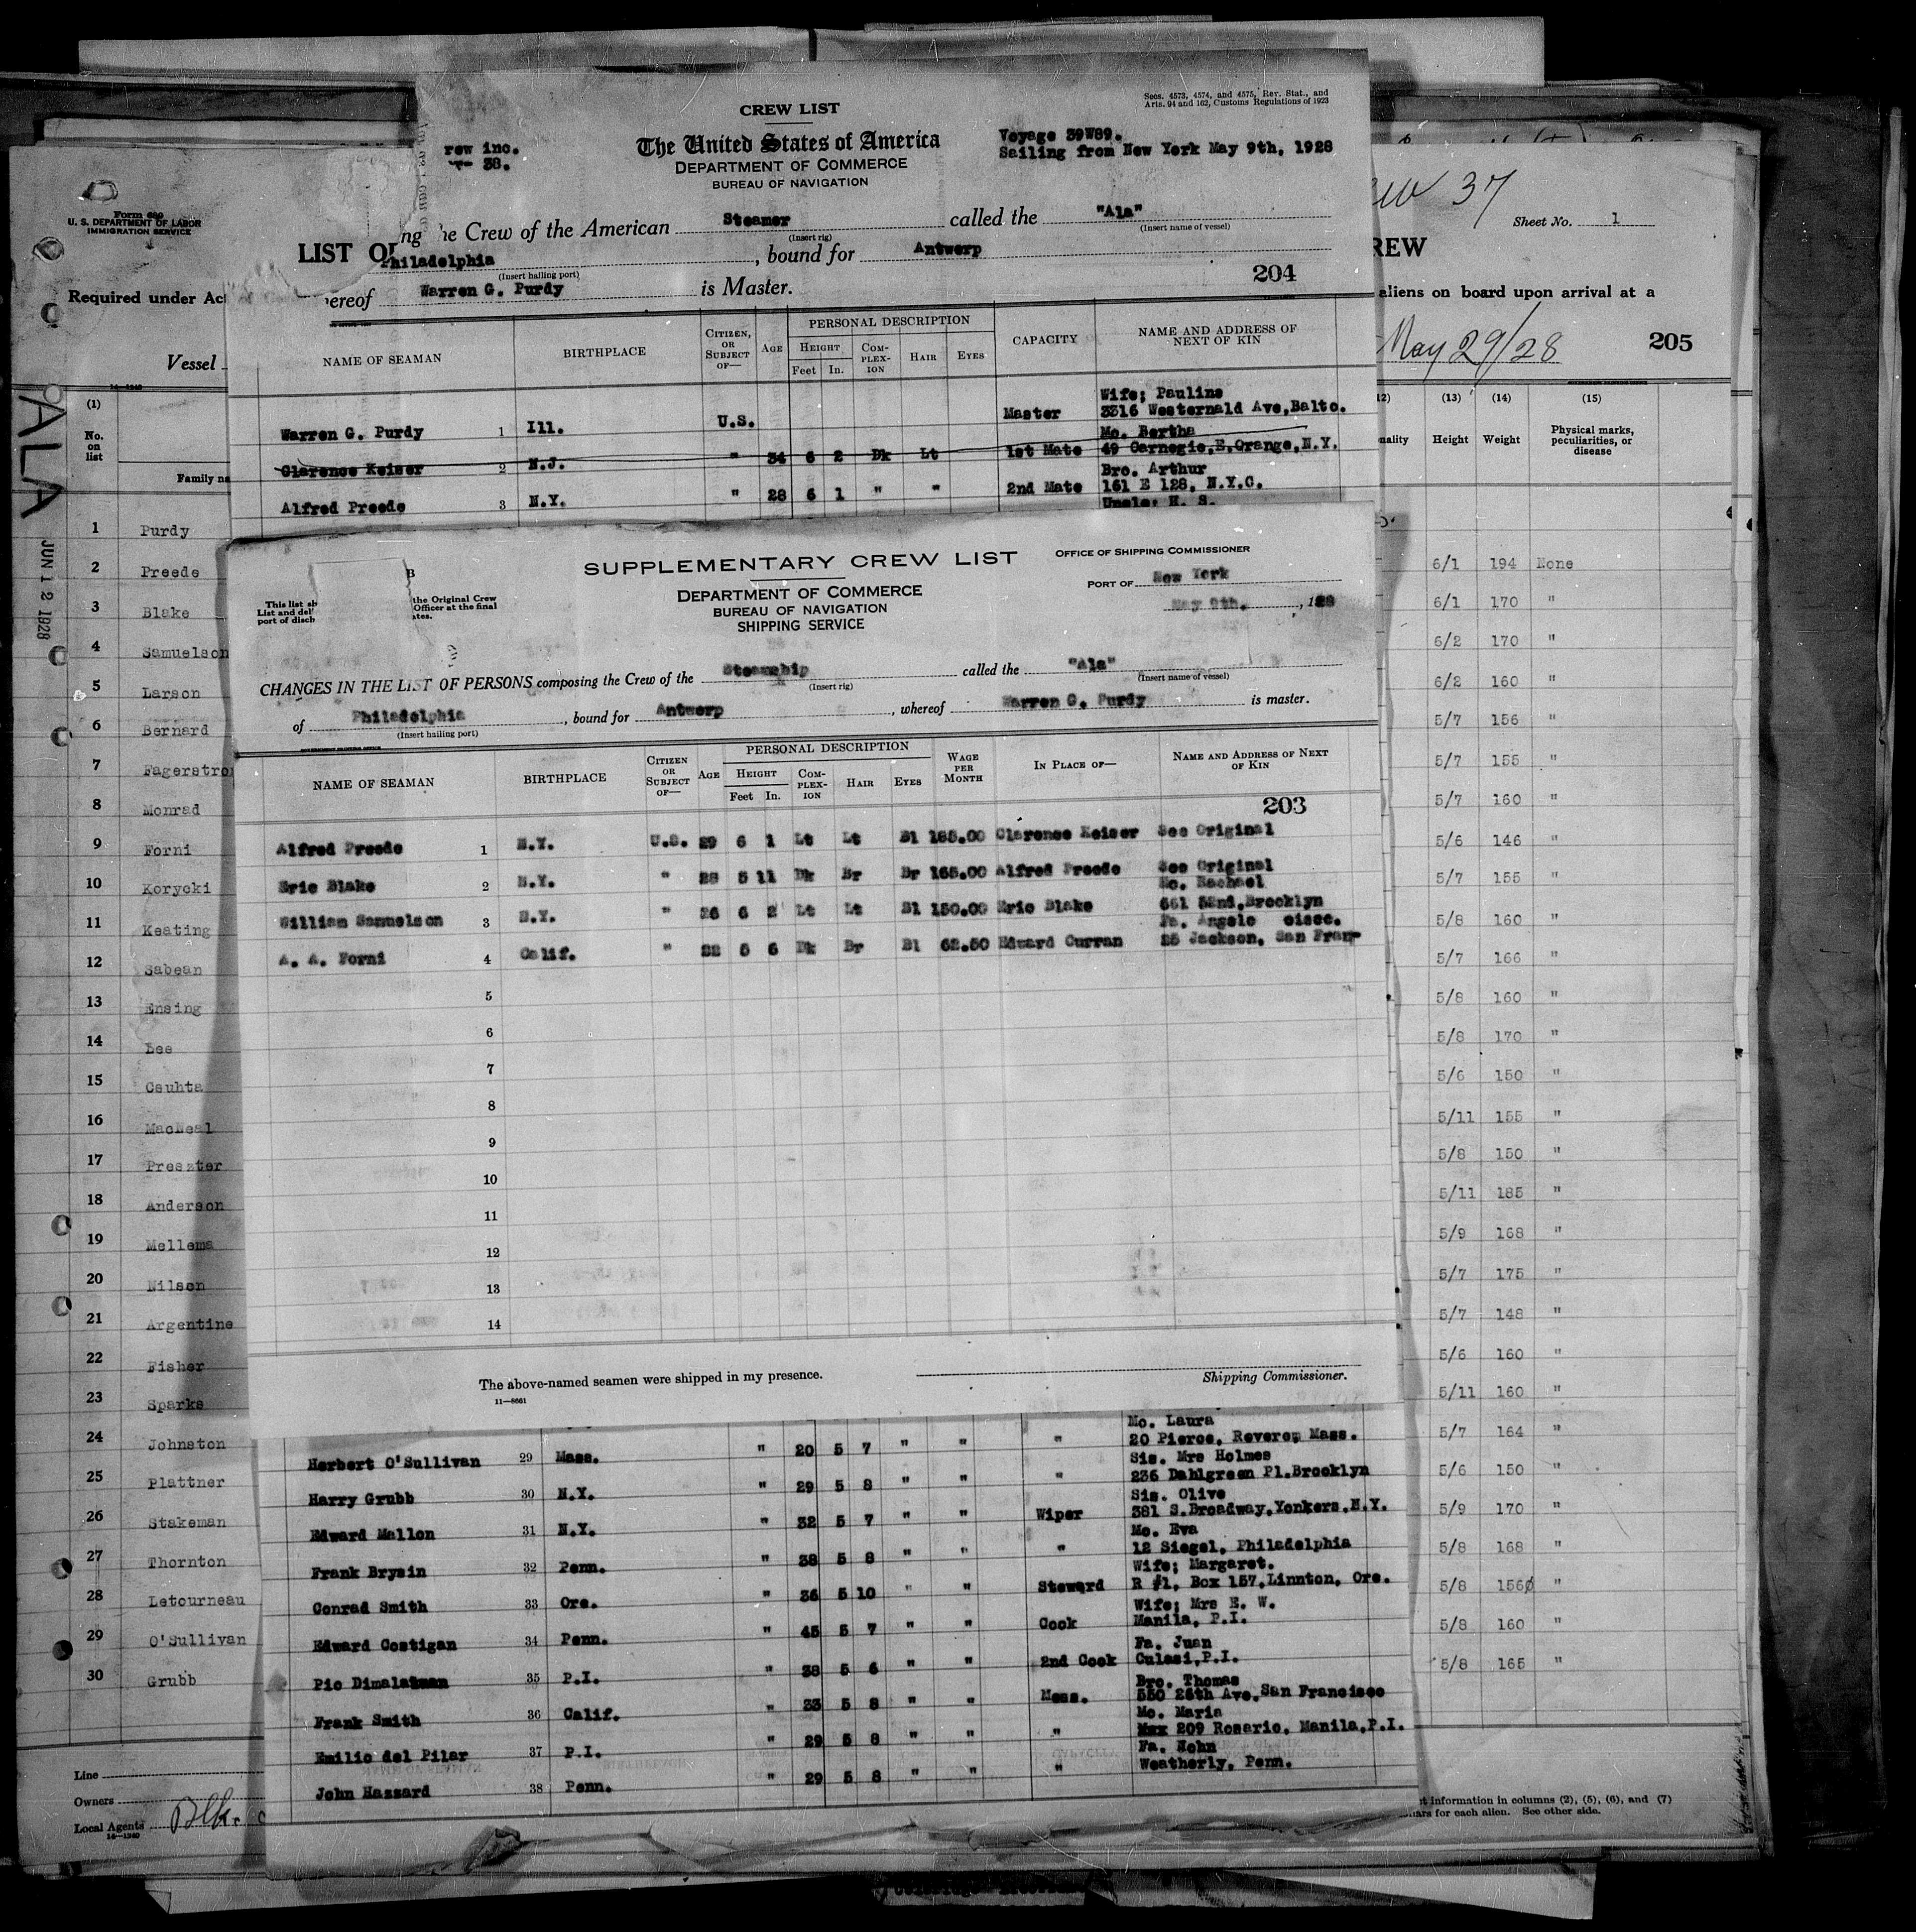 CREW LIST
Secs. 4573, 4574, and 4575, Rev. Stat., and
Arts. 94 and 162, Customs Regulations of 1923
The United States of America
DEPARTMENT OF COMMERCE
BUREAU OF NAVIGATION
Voyage 39W89.
Sailing from New York May 9th, 1928
rew inc.
38.
ng he Crew of the American Steamer called the "Ala"
(Insert rig) (Insert name of vessel)
Philadelphia , bound for Antwerp
(Insert hailing port)
204
ereof Warren G. Purdy is Master.
NAME OF SEAMAN BIRTHPLACE CITIZEN, OR SUBJECT OF— AGE PERSONAL DESCRIPTION HEIGHT Feet In. COMPLEXION HAIR EYES CAPACITY NAME AND ADDRESS OF NEXT OF KIN
Wife; Pauline
Warren G. Purdy 1 Ill. U.S. Master 3316 Westernald Ave,Balto.
Mo. Bertha
Clarence Keiser 2 N.J. " 34 6 2 Dk Lt 1st Mate 49 Carnegie,E,Orange,N.Y.
Bro. Arthur
Alfred Preede 3 N.Y. " 28 6 1 " " 2nd Mate 161 E 128, N.Y.C.
Uncle: H. S.
SUPPLEMENTARY CREW LIST
OFFICE OF SHIPPING COMMISSIONER
PORT OF New York
May 9th. , 1928
DEPARTMENT OF COMMERCE
BUREAU OF NAVIGATION
SHIPPING SERVICE
B
This list sh the Original Crew
List and del Officer at the final
port of disch ates.
CHANGES IN THE LIST OF PERSONS composing the Crew of the Steamship called the "Ala"
(Insert rig) (Insert name of vessel)
of Philadelphia , bound for Antwerp , whereof Warren G. Purdy is master.
(Insert hailing port)
GOVERNMENT PRINTING OFFICE
NAME OF SEAMAN BIRTHPLACE CITIZEN OR SUBJECT OF— AGE PERSONAL DESCRIPTION HEIGHT Feet In. COMPLEXION HAIR EYES WAGE PER MONTH IN PLACE OF— NAME AND ADDRESS OF NEXT OF KIN
203
Alfred Preede 1 N.Y. U.S. 29 6 1 Lt Lt Bl 185.00 Clarence Keiser See Original
Eric Blake 2 N.Y. " 28 5 11 Dk Br Br 165.00 Alfred Preede See Original
Mo. Rachael
William Samuelson 3 N.Y. " 26 6 2 Lt Lt Bl 150.00 Eric Blake 661 52nd,Brooklyn
Fa. Angelo cisco.
A. A. Forni 4 Calif. " 22 5 6 Dk Br Bl 62.50 Edward Curran 25 Jackson, San Fran-
5
6
7
8
9
10
11
12
13
14
The above-named seamen were shipped in my presence.
Shipping Commissioner.
11—8661
Mo. Laura
Herbert O'Sullivan 29 Mass. " 20 5 7 " " " 20 Pierce, Revere, Mass.
Sis. Mrs Holmes
Harry Grubb 30 N.Y. " 29 5 8 " " " 236 Dahlgreen Pl.Brooklyn
Sis. Olive
Edward Mallon 31 N.Y. " 32 5 7 " " Wiper 381 S.Broadway,Yonkers,N.Y.
Mo. Eva
Frank Brysin 32 Penn. " 38 5 8 " " " 12 Siegel, Philadelphia
Wife; Margaret.
Conrad Smith 33 Ore. " 36 5 10 " " Steward R #1, Box 157,Linnton, Ore.
Wife; Mrs E. W.
Edward Costigan 34 Penn. " 45 5 7 " " Cook Manila, P.I.
Fa. Juan
Pio Dimalatman 35 P.I. " 38 5 6 " " 2nd Cook Culasi,P.I.
Bro. Thomas
Frank Smith 36 Calif. " 33 5 8 " " Mess. 550 26th Ave,San Francisco
Mo. Maria
Emilio del Pilar 37 P.I. " 29 5 8 " " " 209 Rosario, Manila,P.I.
Fa. John
John Hazzard 38 Penn. " 29 5 8 " " " Weatherly, Penn.
Form 680
U. S. DEPARTMENT OF LABOR
IMMIGRATION SERVICE
LIST O
Required under Ac
Vessel
14—1240
ALA
JUN 12 1928
(1)
No. on list
Family na
1 Purdy
2 Preede
3 Blake
4 Samuelson
5 Larson
6 Bernard
7 Fagerstro
8 Monrad
9 Forni
10 Korycki
11 Keating
12 Sabean
13 Ensing
14 Lee
15 Csuhta
16 MacNeal
17 Preszter
18 Anderson
19 Mellema
20 Nilson
21 Argentine
22 Fisher
23 Sparks
24 Johnston
25 Plattner
26 Stakeman
27 Thornton
28 Letourneau
29 O'Sullivan
30 Grubb
Line
Owners
Local Agents
14—1240
37
Sheet No. 1
REW
aliens on board upon arrival at a
May 29/28
205
12) (13) (14) (15)
nality Height Weight Physical marks, peculiarities, or disease
6/1 194 None
6/1 170 "
6/2 170 "
6/2 160 "
5/7 156 "
5/7 155 "
5/7 160 "
5/6 146 "
5/7 155 "
5/8 160 "
5/7 166 "
5/8 160 "
5/8 170 "
5/6 150 "
5/11 155 "
5/8 150 "
5/11 185 "
5/9 168 "
5/7 175 "
5/7 148 "
5/6 160 "
5/11 160 "
5/7 164 "
5/6 150 "
5/9 170 "
5/8 168 "
5/8 156 "
5/8 160 "
5/8 165 "
t information in columns (2), (5), (6), and (7)
ars for each alien. See other side.